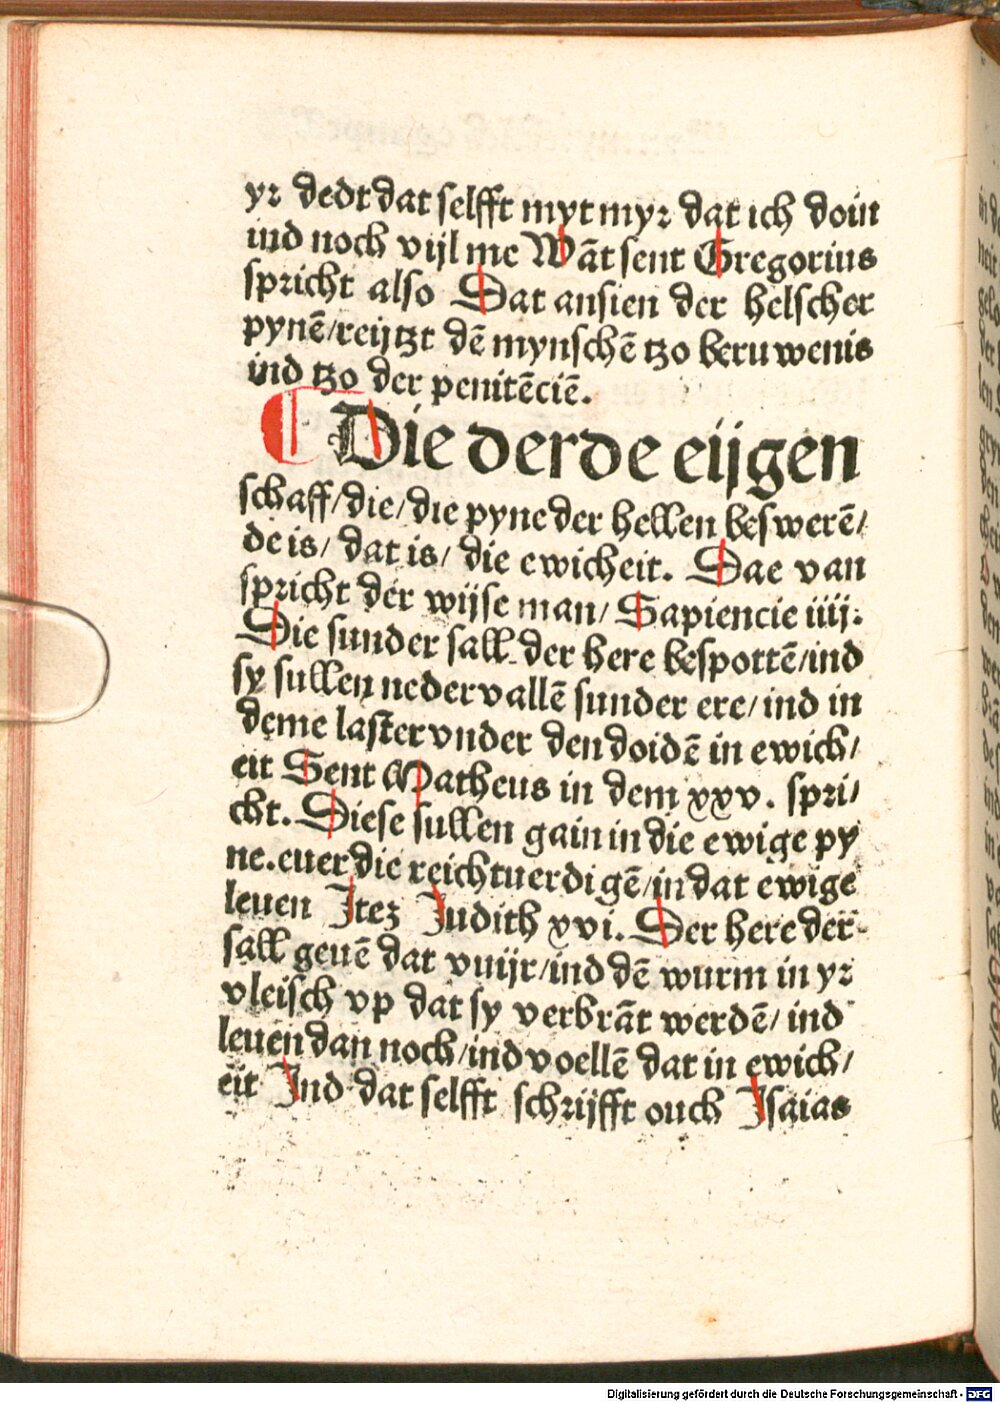 yr dedt dat selfft myt myr dat ich doin
ind noch vijl me Wāt sent Gregorius
spricht also Dat ansien der helscher
pynē/reijtzt dē mynschē tzo beruwenis
ind tzo der penitēciē.
Die derde eijgen
schaff/die/die pyne der hellen beswerē/
de is/ dat is/ die ewicheit. Dae van
spricht der wijse man/ Sapiencie iiij.
Die sunder sall der here bespottē/ind
sy sullen nedervallē sunder ere/ ind in
deme laster vnder den doidē in ewich/
eit Sent Matheus in dem xxv. spri/
cht. Diese sullen gain in die ewige py
ne.euer die reichtuerdigē/in dat ewige
leuen Itez Judith xvi. Der here der
sall geuē dat vuijr/ind dē wurm in yr
vleisch vp dat sy verbrāt werdē/ ind
leuen dan noch/ind voellē dat in ewich/
eit Ind dat selfft schrijfft ouch Isaias
Digitalisierung gefördert durch die Deutsche Forschungsgemeinschaft - DFG